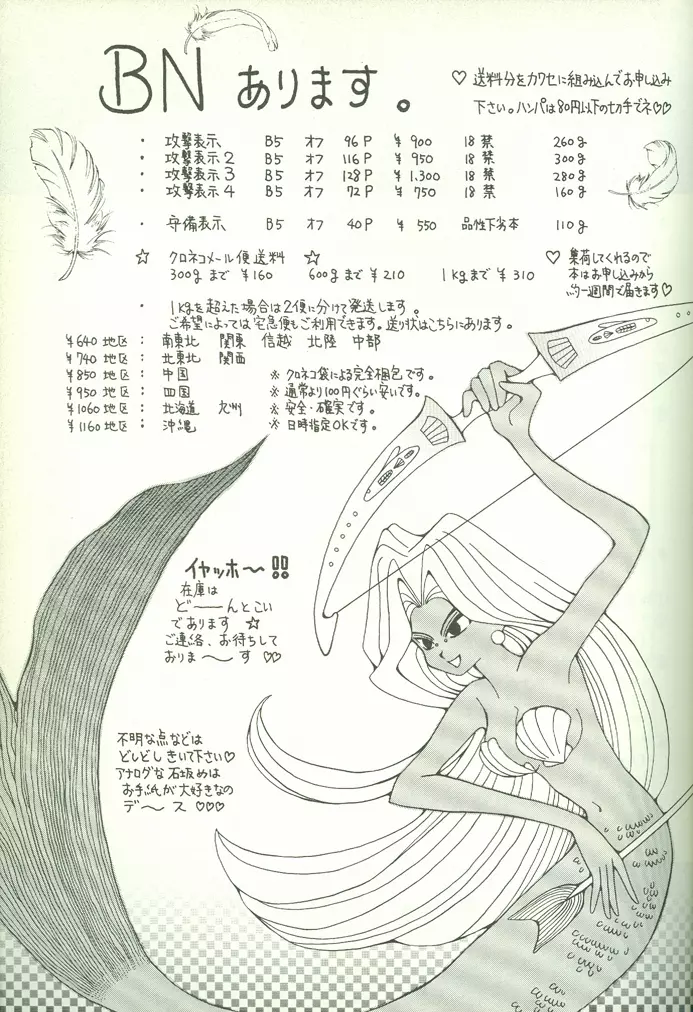 BN あります。
♡ 送料分をカワセに組み込んでお申し込み
下さい。ハンパは80円以下のセカ手でネ♡♡
・ 攻撃表示 B5 オフ 96P ¥900 18禁 260g
・ 攻撃表示2 B5 オフ 116P ¥950 18禁 300g
・ 攻撃表示3 B5 オフ 128P ¥1,300 18禁 280g
・ 攻撃表示4 B5 オフ 72P ¥750 18禁 160g
・ 守備表示 B5 オフ 40P ¥550 品性下劣本 110g
☆ クロネコメール便送料 ☆
300gまで ¥160 600gまで ¥210 1kgまで ¥310
♡ 集荷してくれるので
本はお申し込みから
約一週間で届きます♡
・ 1kgを超えた場合は2便に分けて発送します。
ご希望によっては宅急便もご利用できます。送り状はこちらにあります。
¥640地区： 南東北 関東 信越 北陸 中部
¥740地区： 北東北 関西
¥850地区： 中国 ※クロネコ袋による完全梱包です。
¥950地区： 四国 ※通常より100円ぐらい安いです。
¥1060地区： 北海道 九州 ※安全・確実です。
¥1160地区： 沖縄 ※日時指定OKです。
イヤッホ〜!!
在庫は
ど──んとこい
であります ☆
ご連絡、お待ちして
おりま〜す ♡♡
不明な点などは
どしどしきいて下さい♡
アナログな石坂めは
お手紙が大好きなの
デ〜ス ♡♡♡